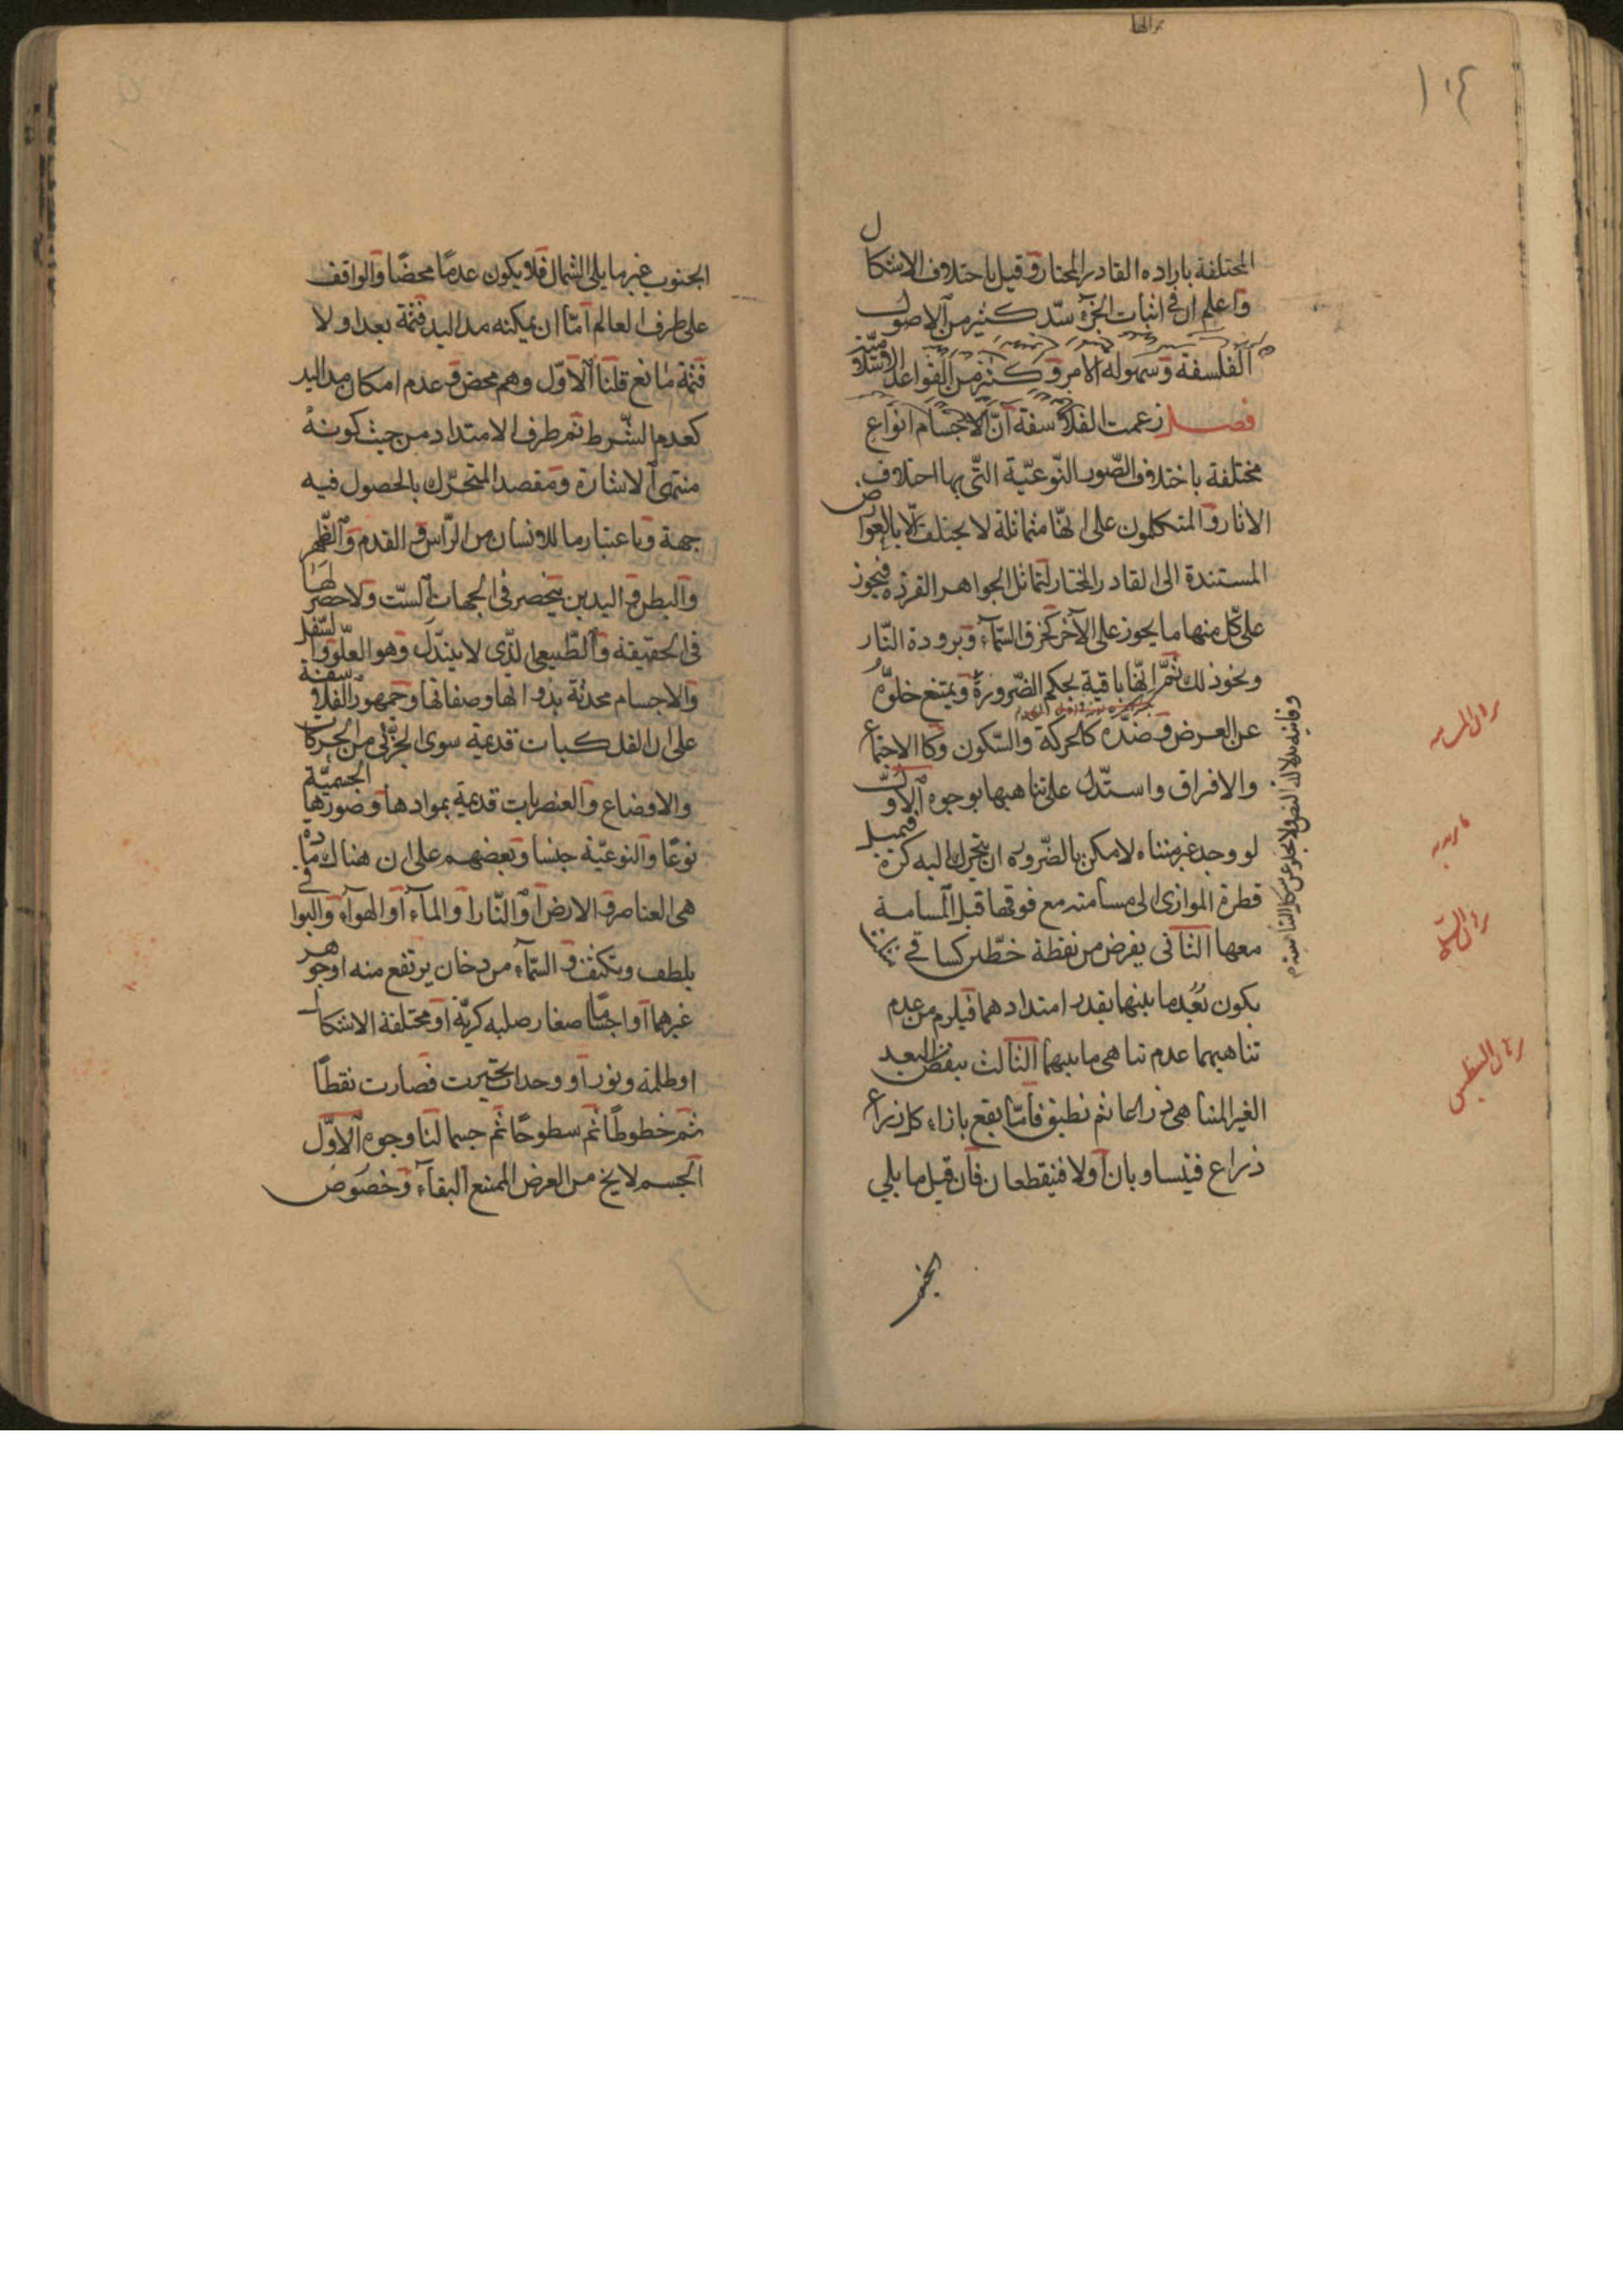 ١٠٤
المختلفة باراده القادر المختار وقيل باختلاف الاشكال
واعلم ان فى اثبات الجزء سدّ كثير من الاصول
الفلسفة وسهولة الامر فى كثير من القواعد الاسلامية
فصل زعمت الفلاسفة انّ الاجسام انواع
مختلفة باختلاف الصّور النّوعيّة التّى بها اختلاف
الاثار والمتكلمون على انّها متماثلة لا يختلف الّا بالعوارض
المستندة الى القادر المختار لتماثل الجواهر الفردة فيجوز
على كلّ منها ما يجوز على الآخر كخرق السّمآء وبرودة النّار
ونحو ذلك ثمّ انّها باقية بحكم الضّرورة ويمتنع خلوّه
عن العرض وضدّه كالحركة والسّكون وكالاجتماع
والافراق واستدّل على تناهيها بوجوه الاوّل
لو وجد غير متناه لامكن بالضّروره ان يتحرك اليه كرة فيميل
قطرة الموازى الى مسامته مع فوقها قبل المسامة
معها الثانى يفرض من نقطة خطّين كساقى
يكون بُعْد ما بينهما بقدر امتدادهما فيلزم من عدم
تناهيهما عدم تناهى ما بينهما الثالث ينقص من البعد
الغير المتناهى ذراعا ثم نطبق فامّا يقع بازاء كل ذراع
ذراع فيتساويان أولا فينقطعان فان قيل ما يلي
الجنوب
الجنوب غير ما يلى الشمال فلا يكون عدمًا محضًا والواقف
على طرف العالم امّا ان يمكنه مد اليد فثمّة بعد او لا
فثمّة مانع قلنا الاوّل وهم محض وعدم امكان مد اليد
كعدم الشّرط ثم طرف الامتداد من حيث كونه
منتهى الاشارة ومقصد المتحرّك بالحصول فيه
جهة وباعتبار ما للانسان من الرّأس والقدم والظّهر
والبطن واليدين ينحصر فى الجهات السّت ولا حصر لها
فى الحقيقة والطّبيعى الّذى لا يتبدّل وهو العلّو والسّفل
والاجسام محدثة بذواتها وصفاتها وجمهور الفلاسفة
على ان الفلكيات قديمة سوى الجزّئى من الحركات
والاوضاع والعنصريات قديمة بموادها وصورها الجسميّة
نوعًا والنوعيّة جنسا وبعضهم على ان هناك مادّه
هى العناصر او الارض او النّار او المآء او الهوآء والبواقى
بلطف وتكثف والسّمآء من دخان يرتفع منه او جوهر
غيرهما او اجسامًا صغار صلبه كريّة او مختلفة الاشكال
او ظلمة ونور او وحدات تحيزت فصارت نقطاً
ثم خطوطًا ثم سطوحًا ثم جسما لنا وجوه الاوّل
الجسم لا يخ من العرض الممتنع البقآء وخصوص